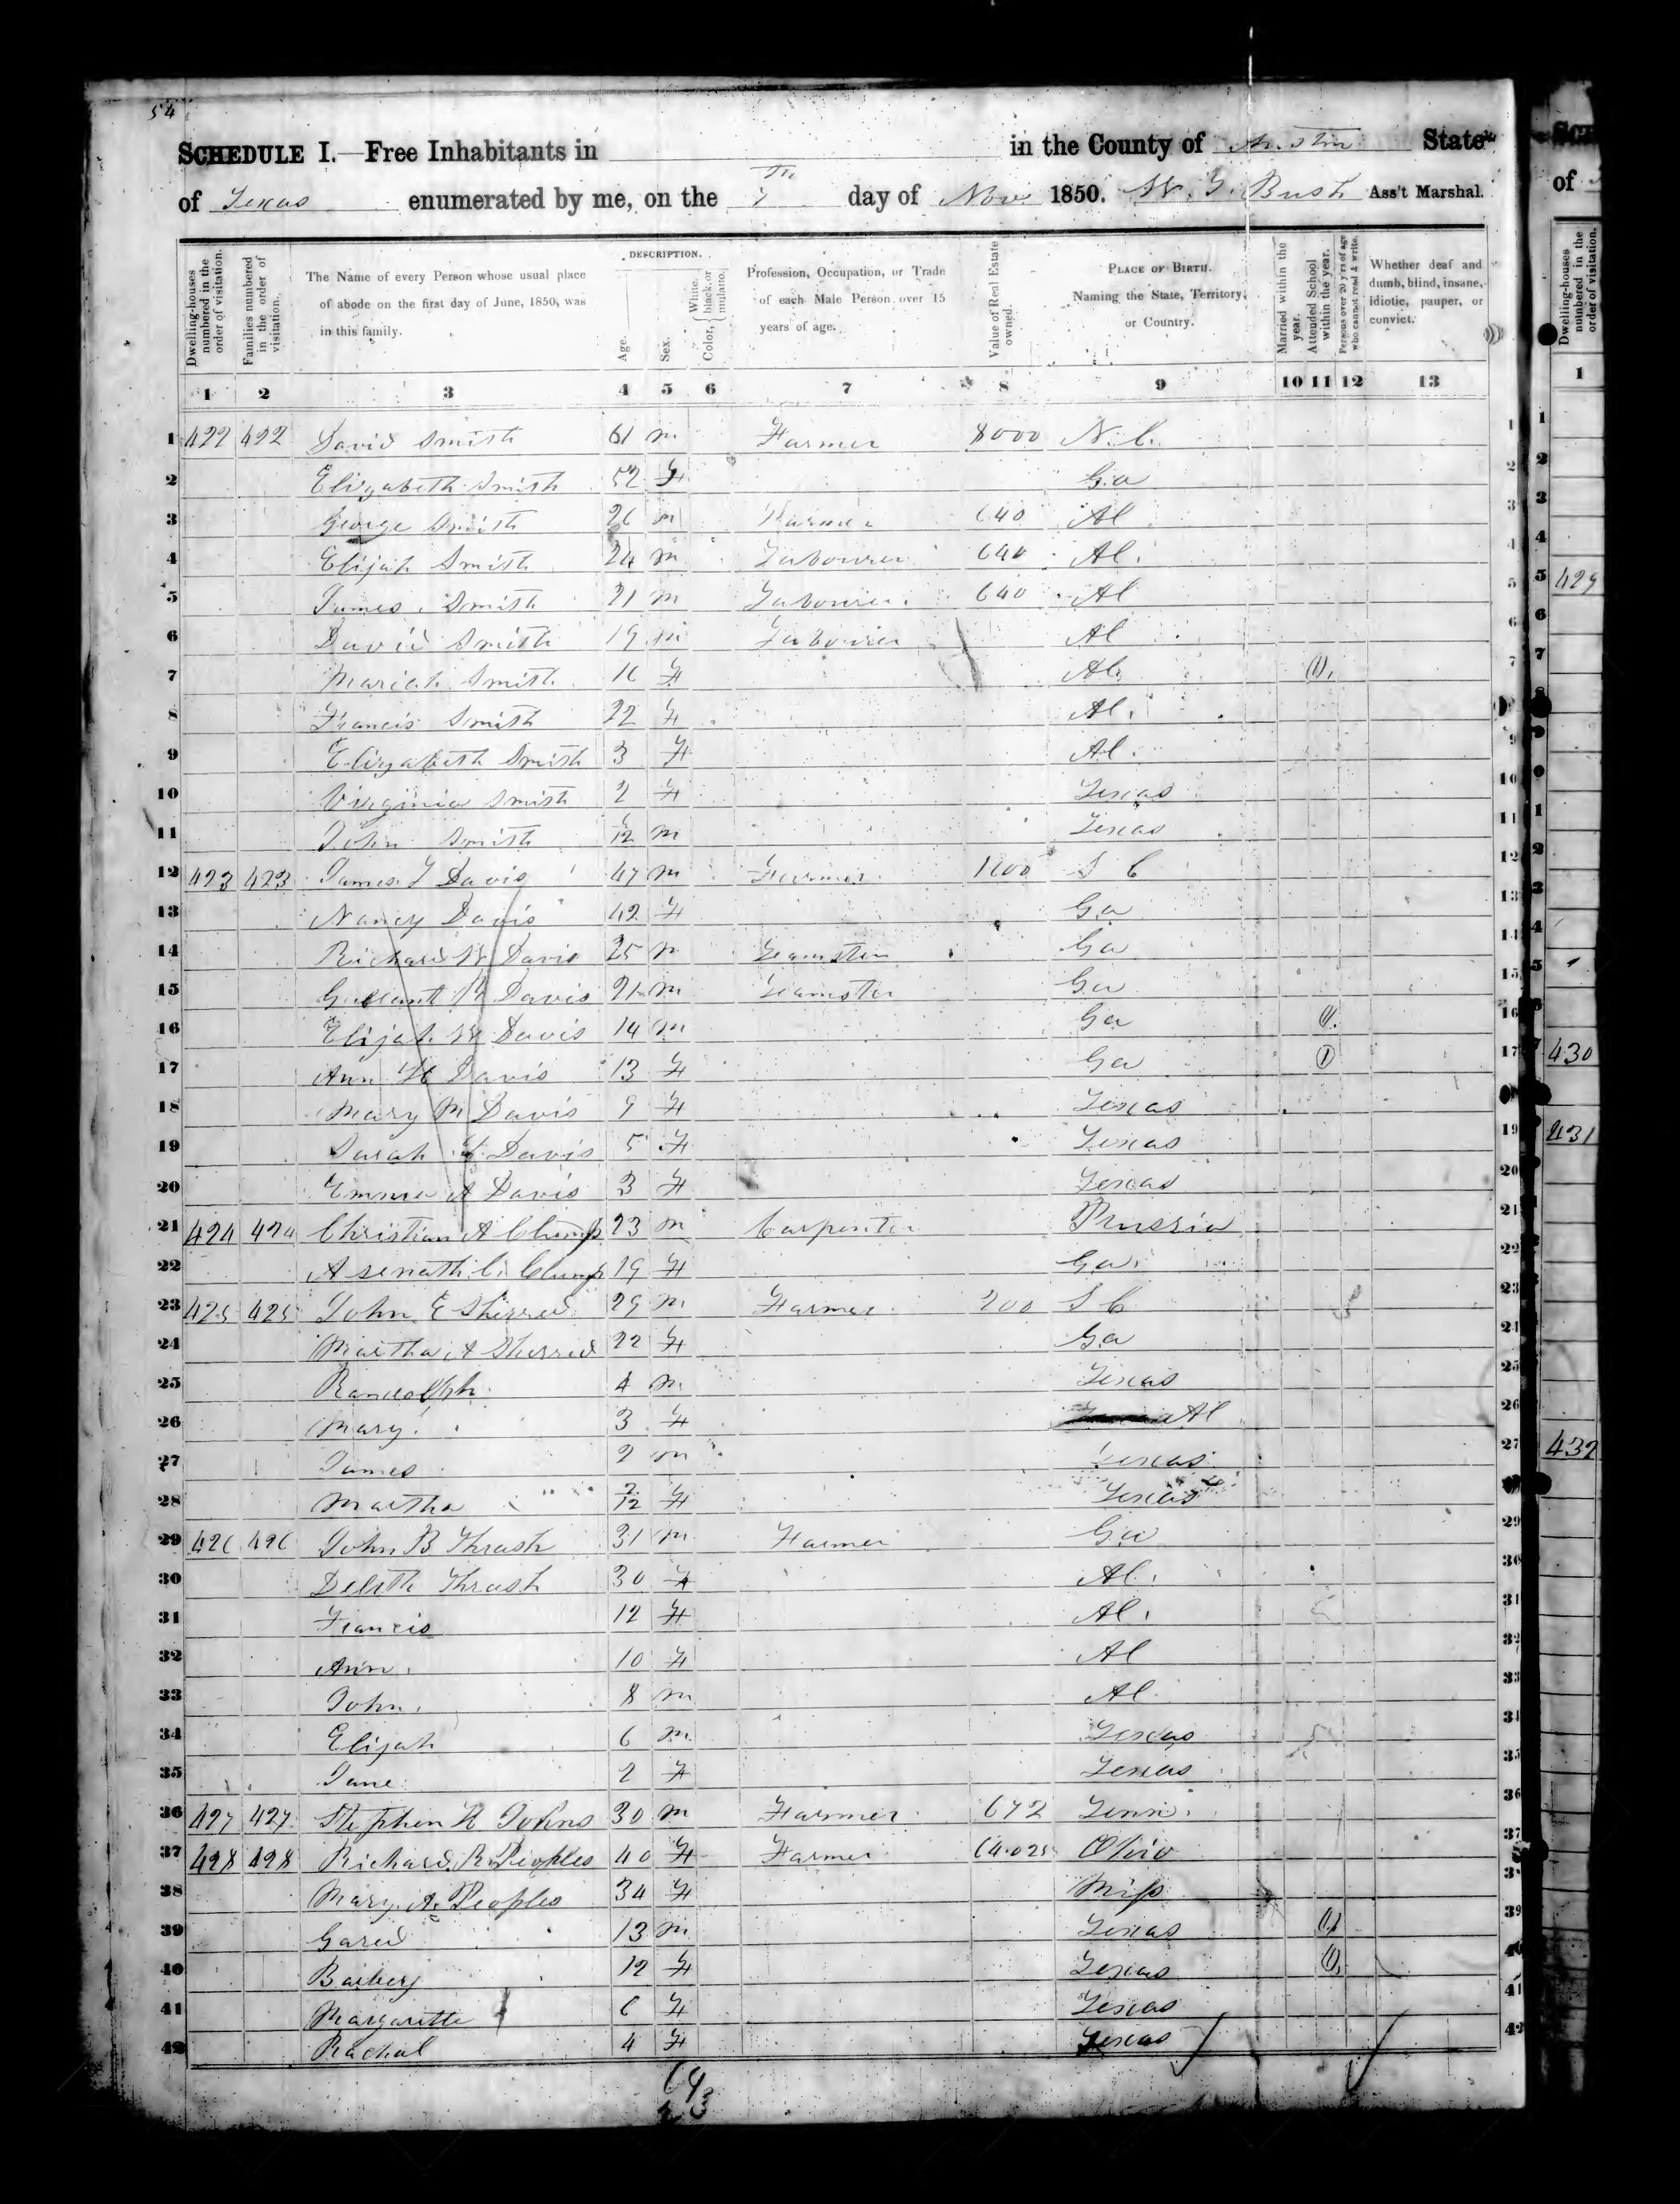 54
SCHEDULE I.—Free Inhabitants in in the County of Austin State
of Texas enumerated by me, on the 7th day of Nov 1850. W. G. Bush Ass't Marshal.
Dwelling-houses numbered in the order of visitation.
Families numbered in the order of visitation.
The Name of every Person whose usual place of abode on the first day of June, 1850, was in this family.
DESCRIPTION.
Age.
Sex.
Color, White, black, or mulatto.
Profession, Occupation, or Trade of each Male Person over 15 years of age.
Value of Real Estate owned.
PLACE OF BIRTH. Naming the State, Territory, or Country.
Married within the year.
Attended School within the year.
Persons over 20 y'rs of age who cannot read & write.
Whether deaf and dumb, blind, insane, idiotic, pauper, or convict.
1 2 3 4 5 6 7 8 9 10 11 12 13
1 422 422 David Smith 61 m Farmer 8000 N. C. 1
2 Elizabeth Smith 52 F Ga 2
3 George Smith 26 m Farmer 640 Al 3
4 Elijah Smith 24 m Labourer 640 Al. 4
5 James Smith 21 m Labourer 640 Al 5
6 David Smith 19 m Labourer Al 6
7 Mariah Smith 16 F Al. (1). 7
8 Francis Smith 22 F Al. 8
9 Elizabeth Smith 3 F Al. 9
10 Virginia Smith 2 F Texas 10
11 John Smith m Texas 11
12 423 423 James Davis 47 m Farmer S C 12
13 Nancy Davis 42 F Ga 13
14 Richard W Davis 25 m Teamster Ga 14
15 Davis 21 m Teamster Ga 15
16 Elijah W Davis 14 m Ga (1). 16
17 Ann H Davis 13 F Ga (1) 17
18 Mary M Davis 9 F Texas 18
19 Sarah Davis 5 F Texas 19
20 Emma A Davis 3 F Texas 20
21 424 424 Christian A Clump 23 m Carpenter Prussia 21
22 Asenath C. Clump 19 F Ga. 22
23 425 425 John E Sherred 29 m Farmer 200 S C 23
24 Martha A Sherred 22 F Ga 24
25 Randolph 4 m Texas 25
26 Mary 3 F Al 26
27 James 2 m Texas 27
28 Martha 2/12 F Texas 28
29 426 426 John B Thrash 31 m Farmer Ga 29
30 Thrash 30 F Al. 30
31 Francis 12 F Al. 31
32 Ann. 10 F Al 32
33 John. 8 m Al. 33
34 Elijah 6 m Texas 34
35 Jane 2 F Texas 35
36 427 427 Stephen H Johns 30 m Farmer 672 Tenn. 36
37 428 428 Richard R Peoples 40 F Farmer Ohio 37
38 Mary A. Peoples 34 F Miss 38
39 Gared 13 m Texas (1) 39
40 12 F Texas (1). 40
41 Margarette 6 F Texas 41
42 Rachal 4 F Texas 42
of
Dwelling-houses numbered in the order of visitation.
1
429
430
431
432